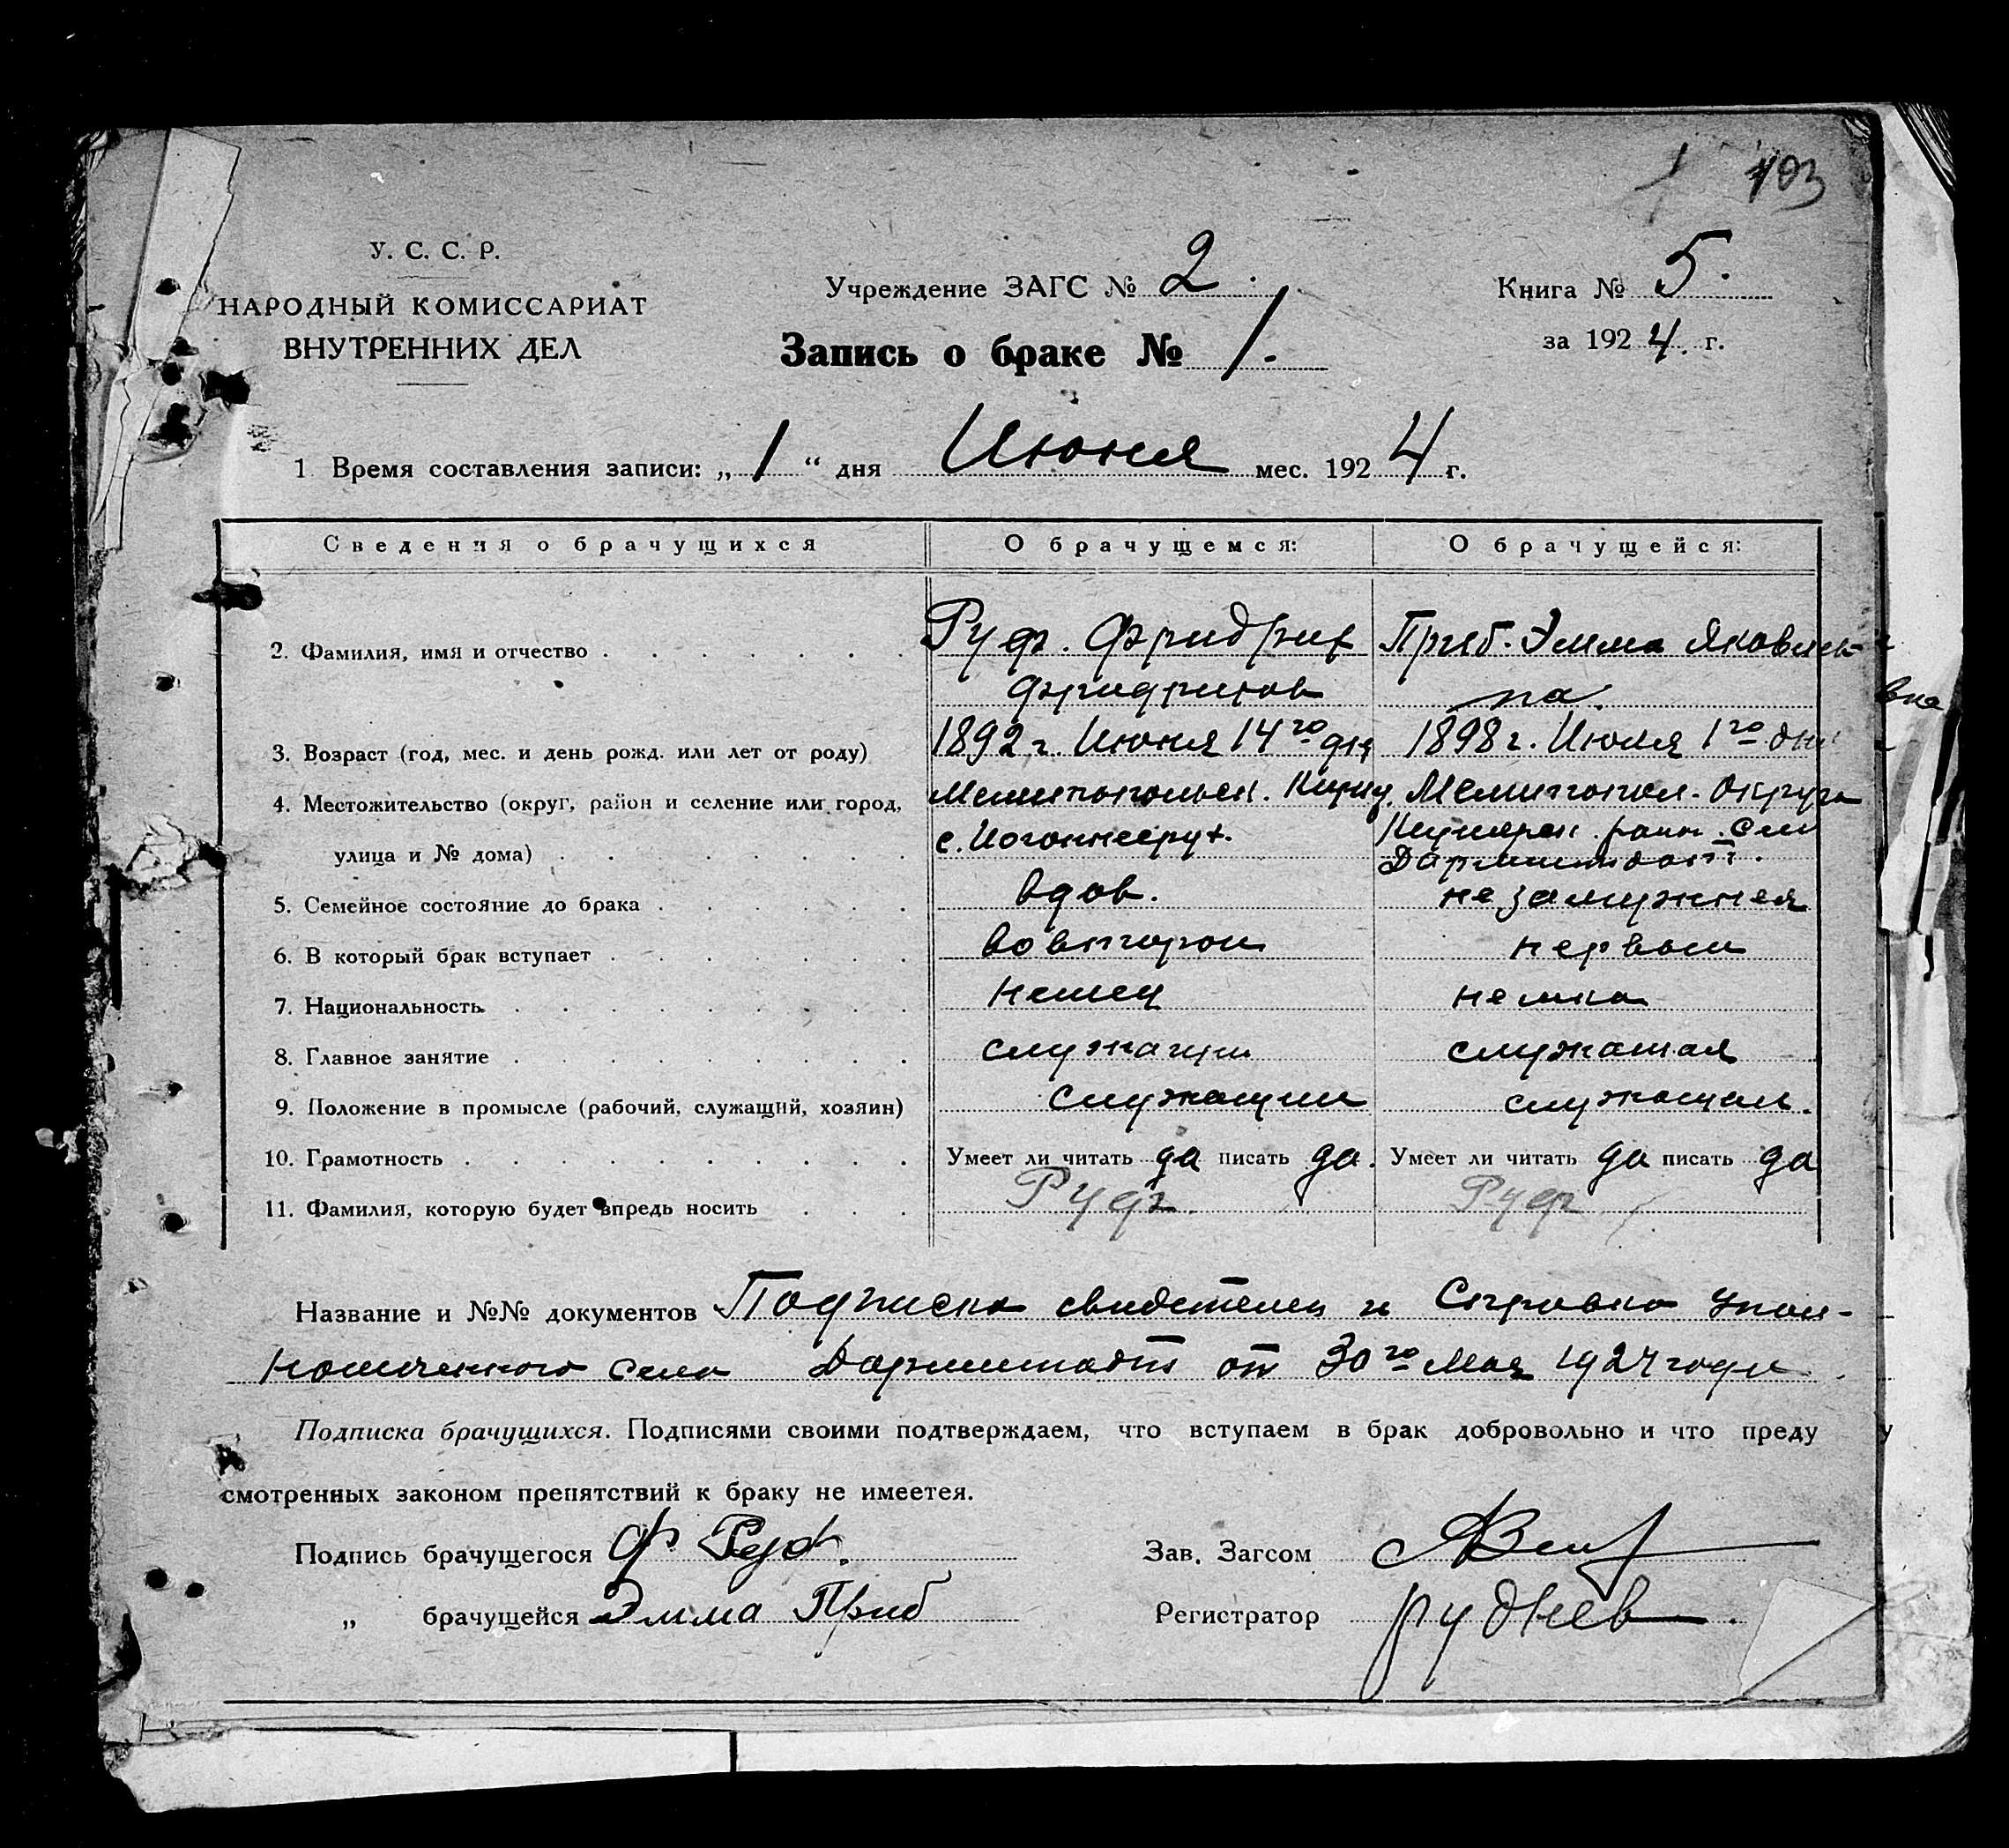 103
У. С. С. Р.
НАРОДНЫЙ КОМИССАРИАТ
ВНУТРЕННИХ ДЕЛ
Учреждение ЗАГС № 2.
Книга № 5.
Запись о браке № 1.
за 1924. г.
1 Время составления записи: „ 1 “ дня Июня мес. 1924 г.
Сведения о брачущихся О брачущемся: О брачущейся:
2. Фамилия, имя и отчество Руф. Фридрих Приб. Эмма Яковлев-
Фридрихов на.
3. Возраст (год, мес. и день рожд. или лет от роду) 1892 г. Июня 14го дня 1898 г. Июля 1го дня
4. Местожительство (округ, район и селение или город, Мелитопольск. Мелитопол. Округа
улица и № дома) с. Иоганнесру. район. село
Дармштадт.
5. Семейное состояние до брака вдов. незамужняя
6. В который брак вступает во второй первый
7. Национальность немец немка
8. Главное занятие служащий служащая
9. Положение в промысле (рабочий, служащий, хозяин) служащий служащая.
10. Грамотность Умеет ли читать да писать да. Умеет ли читать да писать да
11. Фамилия, которую будет впредь носить Руф. Руф
Название и №№ документов Подписка свидетелей и Справка Упол-
номоченного села Дармштадт от 30го Мая 1924 года
Подписка брачущихся. Подписями своими подтверждаем, что вступаем в брак добровольно и что преду
смотренных законом препятствий к браку не имеетея.
Подпись брачущегося Ф Руф. Зав. Загсом
„ брачущейся Эмма Приб Регистратор Руднев